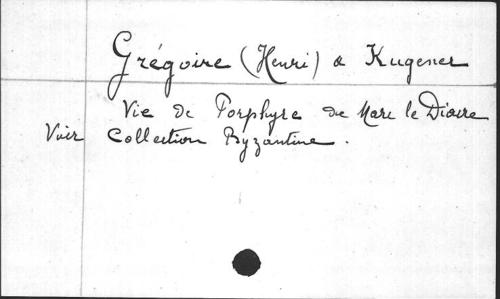 Grégoire (Henri) & Kugener
Vie de Porphyre de Marc le Diacre
Voir Collection Byzantine.